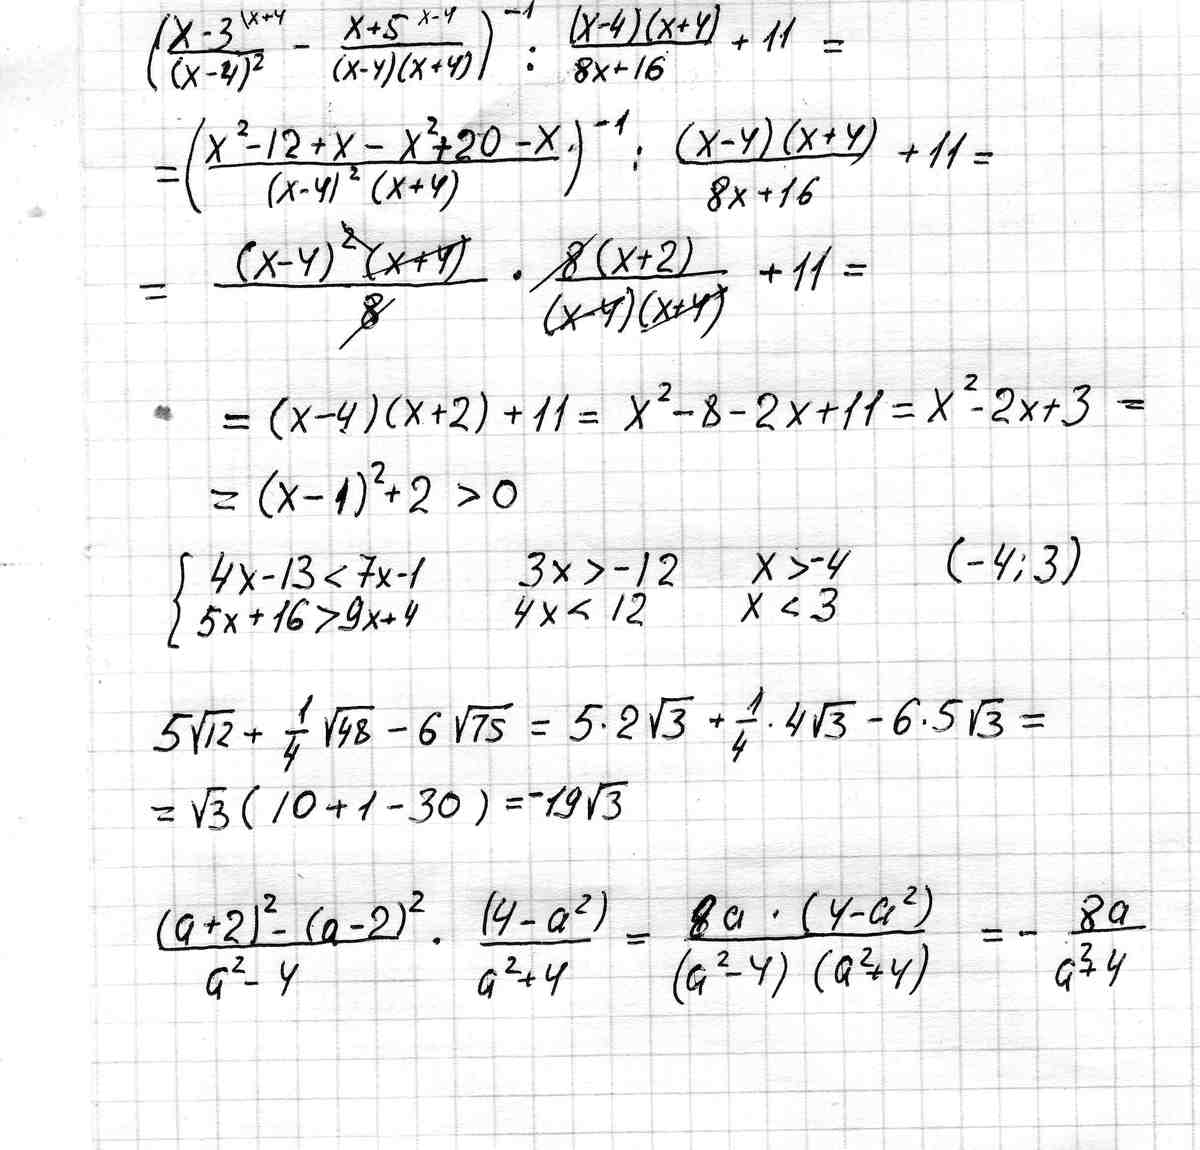 ((x-3^{\x+4})/(x-4)² - (x+5^{x-4})/((x-4)(x+4)))⁻¹ : ((x-4)(x+4))/(8x+16) + 11 =
= ((x²-12+x-x²+20-x)/((x-4)²(x+4)))⁻¹ : ((x-4)(x+4))/(8x+16) + 11 =
= ((x-4)²(x+4))/8 · (8(x+2))/((x-4)(x+4)) + 11 =
= (x-4)(x+2) + 11 = x²-8-2x+11 = x²-2x+3 =
= (x-1)²+2 > 0
{ 4x-13<7x-1 3x>-12 x>-4 (-4;3)
5x+16>9x+4 4x<12 x<3
5√12 + 1/4 √48 - 6√75 = 5·2√3 + 1/4 · 4√3 - 6·5√3 =
= √3(10+1-30) = -19√3
((a+2)²-(a-2)²)/(a²-4) · (4-a²)/(a²+4) = (8a·(4-a²))/((a²-4)(a²+4)) = - 8a/(a²+4)